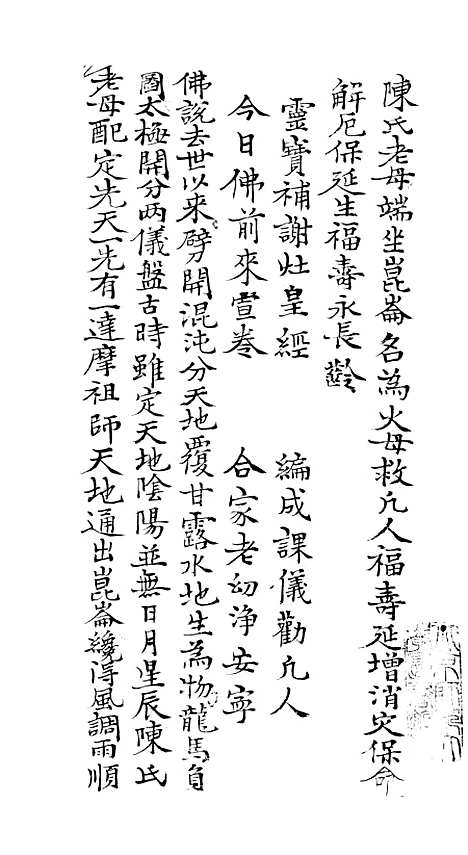 陳氏老母端坐崑崙名為火母救凢人福壽延增消灾保命
解厄保延生福壽永長齡
靈寳補謝灶皇經　編成課儀勸凢人
今日佛前來宣卷　合家老幼浄安寜
佛說去世以来劈開混沌分天地覆甘露水地生為物龍馬負
圖太極開分两儀盤古時雖定天地陰陽並無日月星辰陳氏
老母配定先天一先有一達摩祖師天地通出崑崙纔淂風調雨順